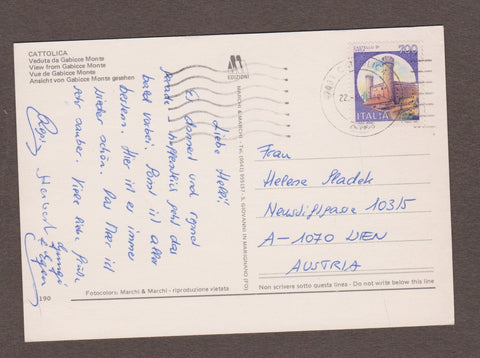 CATTOLICA
Veduta da Gabicce Monte
View from Gabicce Monte
Vue de Gabicce Monte
Ansicht von Gabicce Monte gesehen
EDIZIONI
MARCHI & MARCHI - Tel. (0541) 955137 - S. GIOVANNI IN MARIGNANO (FO)
Liebe Helli!
Es donnert und
hoffentlich geht das
bald vorbei. Sonst ist alles
bestens. Hier ist es immer
wieder schön. Das Meer ist
sehr sauber. Viele liebe Grüße
Herbert
190
Fotocolors: Marchi & Marchi - riproduzione vietata
200
ITALIA
22.
Frau
Helene Sladek
Neustiftgasse 103/5
A-1070 WIEN
AUSTRIA
Non scrivere sotto questa linea - Do not write below this line